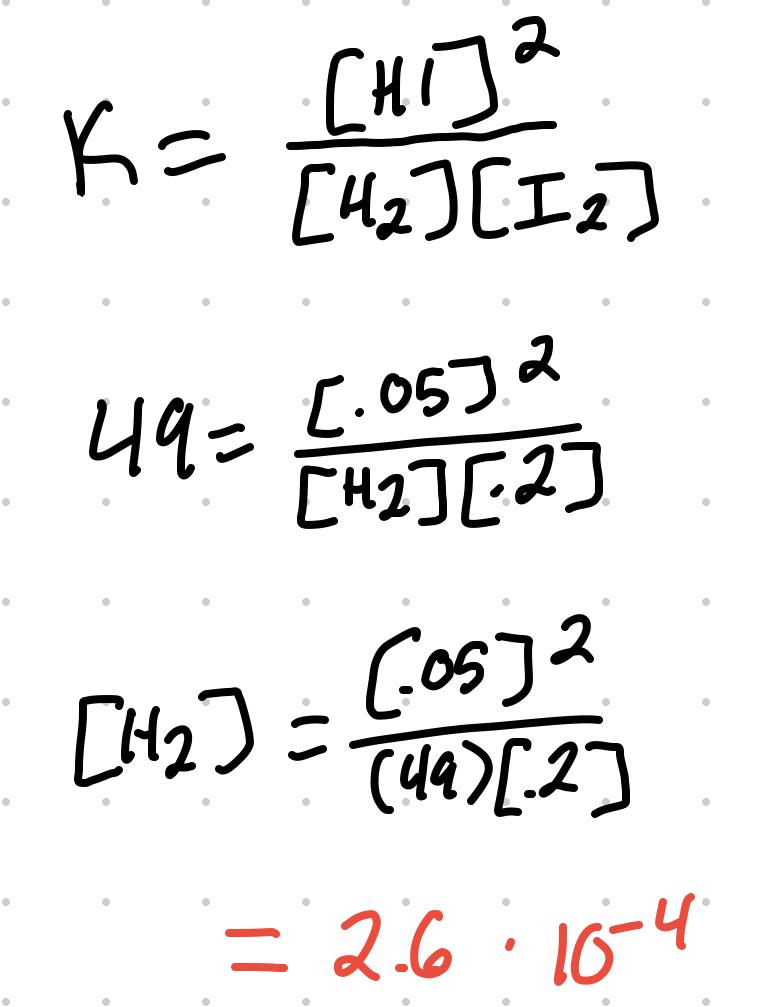 K = [HI]² / [H₂][I₂]
49 = [.05]² / [H₂][.2]
[H₂] = [.05]² / (49)[.2]
= 2.6 · 10⁻⁴